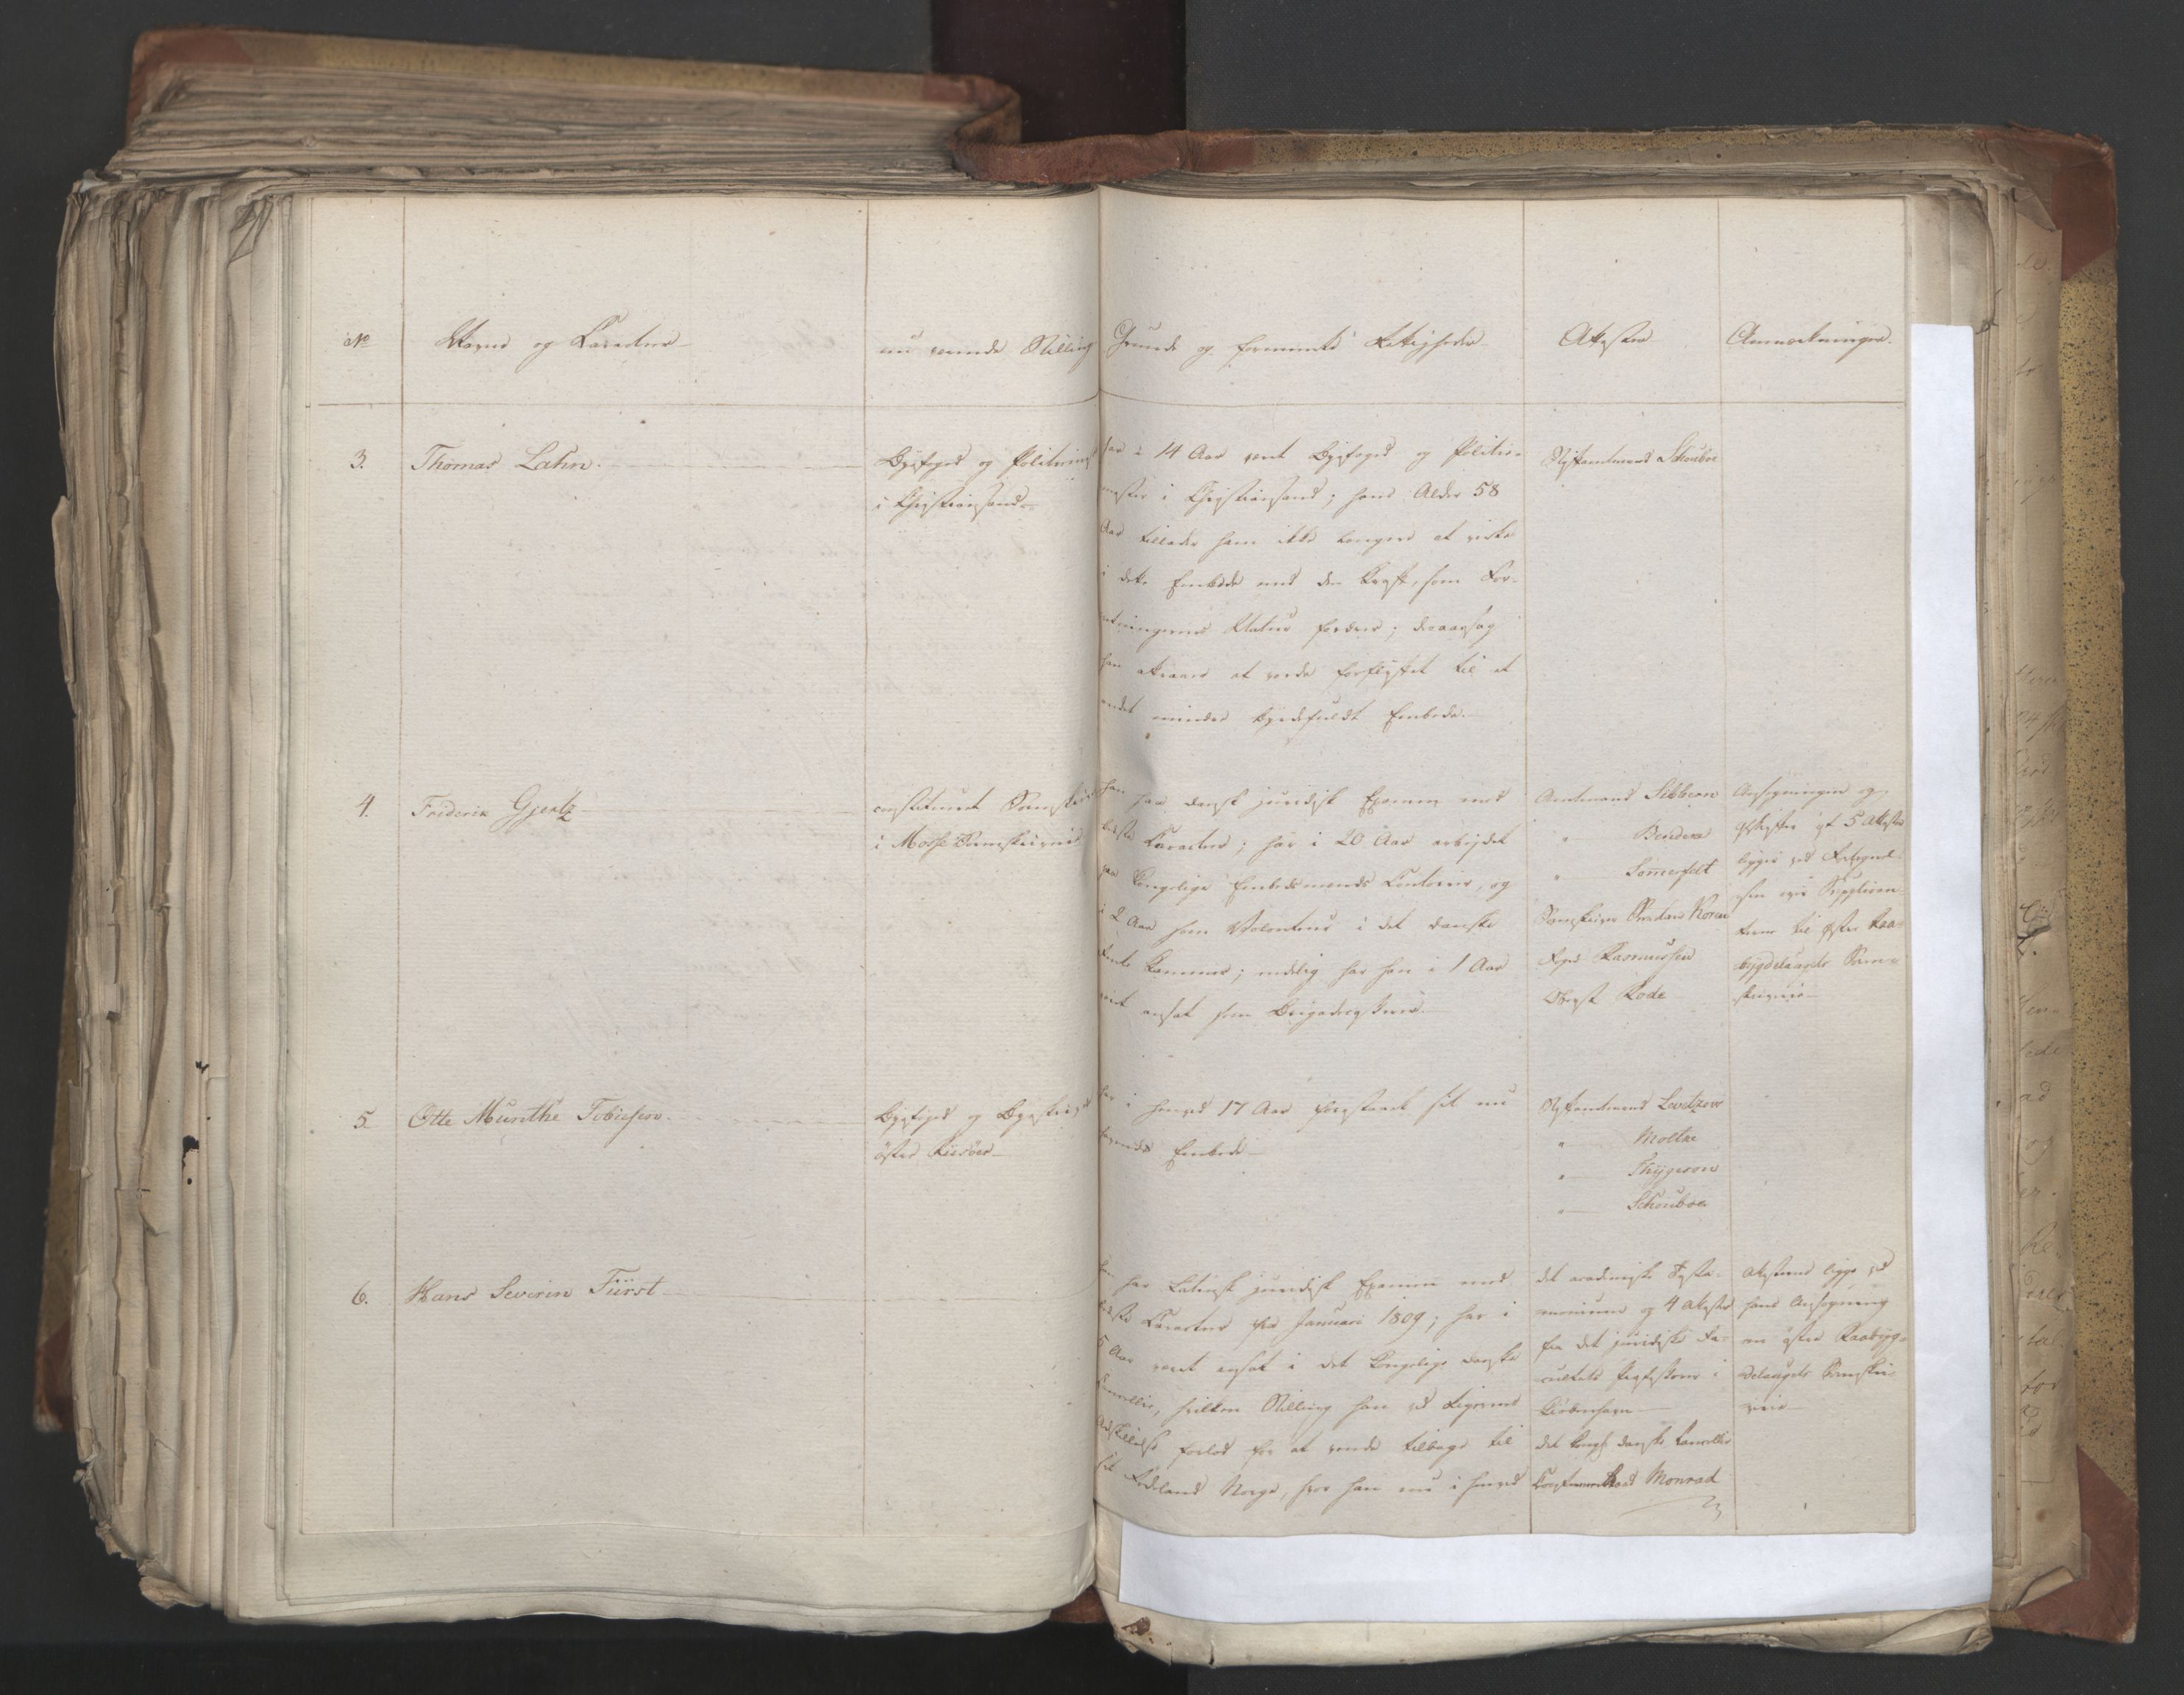 No
Navne og Caracteer
nu værende Stilling
Grunde og formeente Rettigheder
Attester
Anmærkninger.
3.
Thomas Lahn.
Byefoged og Politiemest
i Christiansand
har i 14 Aar været Byefoged og Politie-
mester i Christiansand; hans Alder 58
Aar tillader ham ikke længere at virke
i dette Embede med den Kraft, som For-
retningernes Natur fordrer; deraarsag
han attraaer at vorde forflyttet til et
andet mindre byrdefuldt Embede.
Stiftamtmand Schouboe
4.
Friderik Gjertz
constitueret Sorenskriver
i Mosse Sorenskriverie
han har dansk juridisk Examen med
bedste Caracteer; har i 20 Aar arbejdet
paa Kongelige Embedsmænds Contoirer, og
i 2 Aar som Volonteur i det danske
Rente Kammer; endelig har han i 1 Aar
været ansat som Brigadeskriver.
Amtmand Sibbern
" Bendere
" Somerfelt
Sorenskriver Koren
Foged Rasmussen
Oberst Rode
Ansøgningen og
Gjenparter af 5 Attester
ligger ved Fortegnel-
sen over Supplican-
terne til Øster Raa-
bygdelaugets Soren-
skriverie
5.
Otte Munthe Tobiesen.
Byefoged og Byeskriver
öster Riisöer
har i henved 17 Aar forestaaet sit nu
havende Embede
Stiftamtmand Levetzow
" Moltke
" Thygeson
" Schouboe
6.
Hans Severin Fürst
han har Latinsk juridisk Examen med
bedste Caracteer fra Januari 1809; har i
5 Aar været ansat i det Kongelige danske
Cancellie, hvilken Stilling han ved Rigernes
Adskillelse forlod for at vende tilbage til
sit Fødeland Norge, hvor han nu i henved
det academiske Testa-
monium og 4 Attester
fra det juridiske Fa-
cultets Professorer i
Kiöbenhavn
det Kongl: danske Cancellie
Monrad
Attesterne ligge ved
hans Ansøgning
om öster Raabyg-
delaugets Sorenskri-
verie